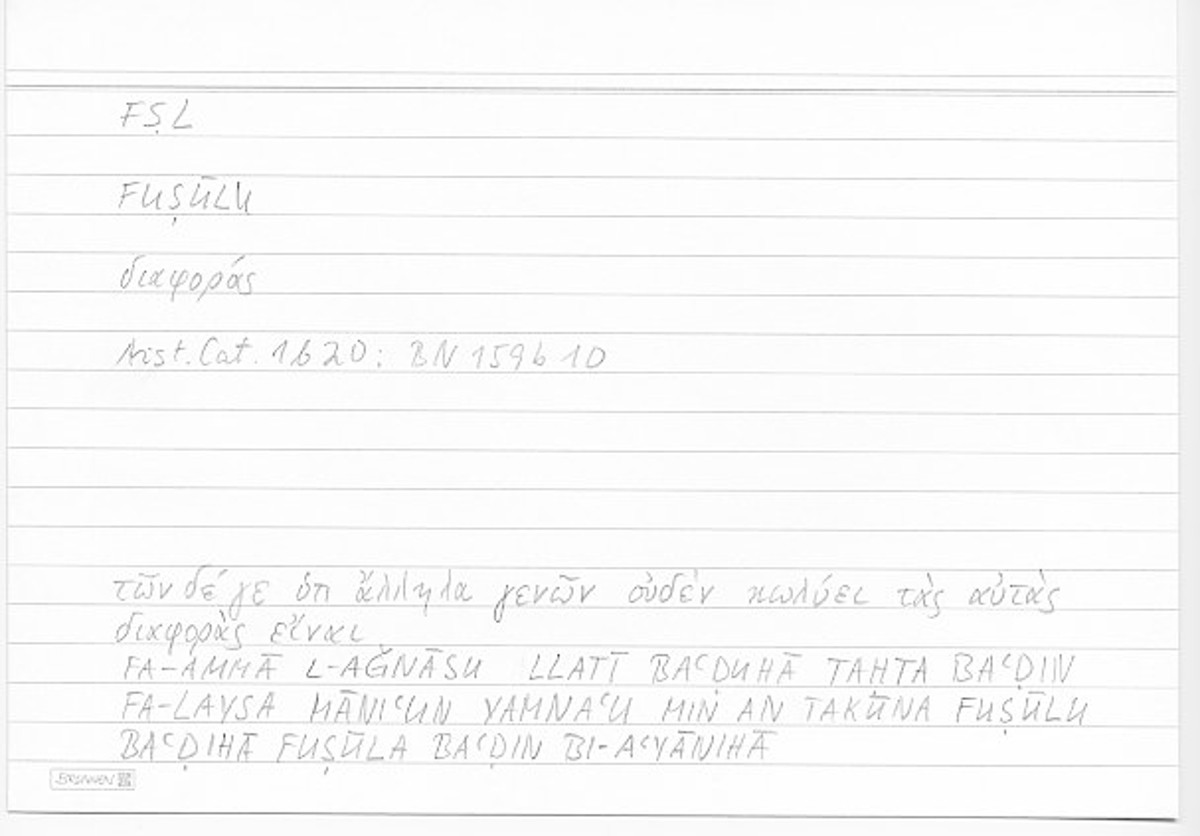 FṢL
FUṢŪLU
διαφοράς
Arist. Cat. 1b20: BN 159b 10
τῶν δέ γε ὑπ' ἄλληλα γενῶν οὐδὲν κωλύει τὰς αὐτὰς
διαφορὰς εἶναι
FA-AMMĀ L-AǦNĀSU LLATĪ BAʿḌUHĀ TAḤTA BAʿḌIN
FA-LAYSA MĀNIʿUN YAMNAʿU MIN AN TAKŪNA FUṢŪLU
BAʿḌIHĀ FUṢŪLA BAʿḌIN BI-AʿYĀNIHĀ
BRUNNEN